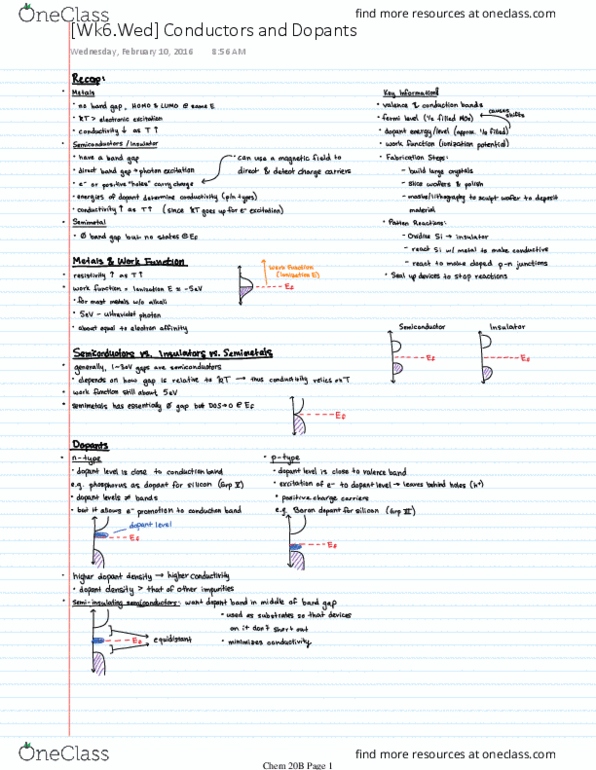 OneClass
find more resources at oneclass.com
[Wk6.Wed] Conductors and Dopants
Wednesday, February 10, 2016 8:56 AM
Recap:
• Metals
• no band gap, HOMO & LUMO @ same E
• kT > electronic excitation
• conductivity ↓ as T↑
• Semiconductors / Insulator
• have a band gap
• direct band gap → photon excitation
• e⁻ or positive "holes" carry charge
• can use a magnetic field to direct & detect charge carriers
• energies of dopant determine conductivity (p/n types)
• conductivity ↑ as T↑ (since kT goes up for e⁻ excitation)
• Semimetal
• ∅ band gap but no states @ EF
Key Information!
• valence & conduction bands
• fermi level (½ filled MOs)
causes shifts
• dopant energy/level (approx. ½ filled)
• work function (ionization potential)
• Fabrication Steps:
– build large crystals
– slice wafers & polish
– masks/lithography to sculpt wafer to deposit
material
• Pattern Reactions:
– Oxidize Si → insulator
– react Si w/ metal to make conductive
– react to make doped p-n junctions
• Seal up devices to stop reactions
Metals & Work Function
• resistivity ↑ as T↑
• work function = Ionization E ≈ ~5eV
• for most metals w/o alkali
• 5eV – ultraviolet photon
• about equal to electron affinity
work function
(ionization E)
EF
Semiconductor
Insulator
EF
EF
Semiconductors vs. Insulators vs. Semimetals
• generally, 1-3eV gaps are semiconductors
• depends on how gap is relative to kT → thus conductivity relies on T
• work function still about 5eV
• semimetals has essentially ∅ gap but DOS→0 @ EF
EF
Dopants
• n-type
• dopant level is close to conduction band
e.g. phosphorus as dopant for silicon (Grp V)
• dopant levels ≠ bands
• but it allows e⁻ promotion to conduction band
dopant level
EF
• p-type
• dopant level is close to valence band
• excitation of e⁻ to dopant level → leaves behind holes (h⁺)
• positive charge carriers
e.g. Boron dopant for silicon (Grp III)
EF
• higher dopant density → higher conductivity
• dopant density > that of other impurities
• Semi-insulating semiconductors: want dopant band in middle of band gap
EF
equidistant
• used as substrates so that devices
on it don't short out
• minimizes conductivity
OneClass
find more resources at oneclass.com
Chem 20B Page 1